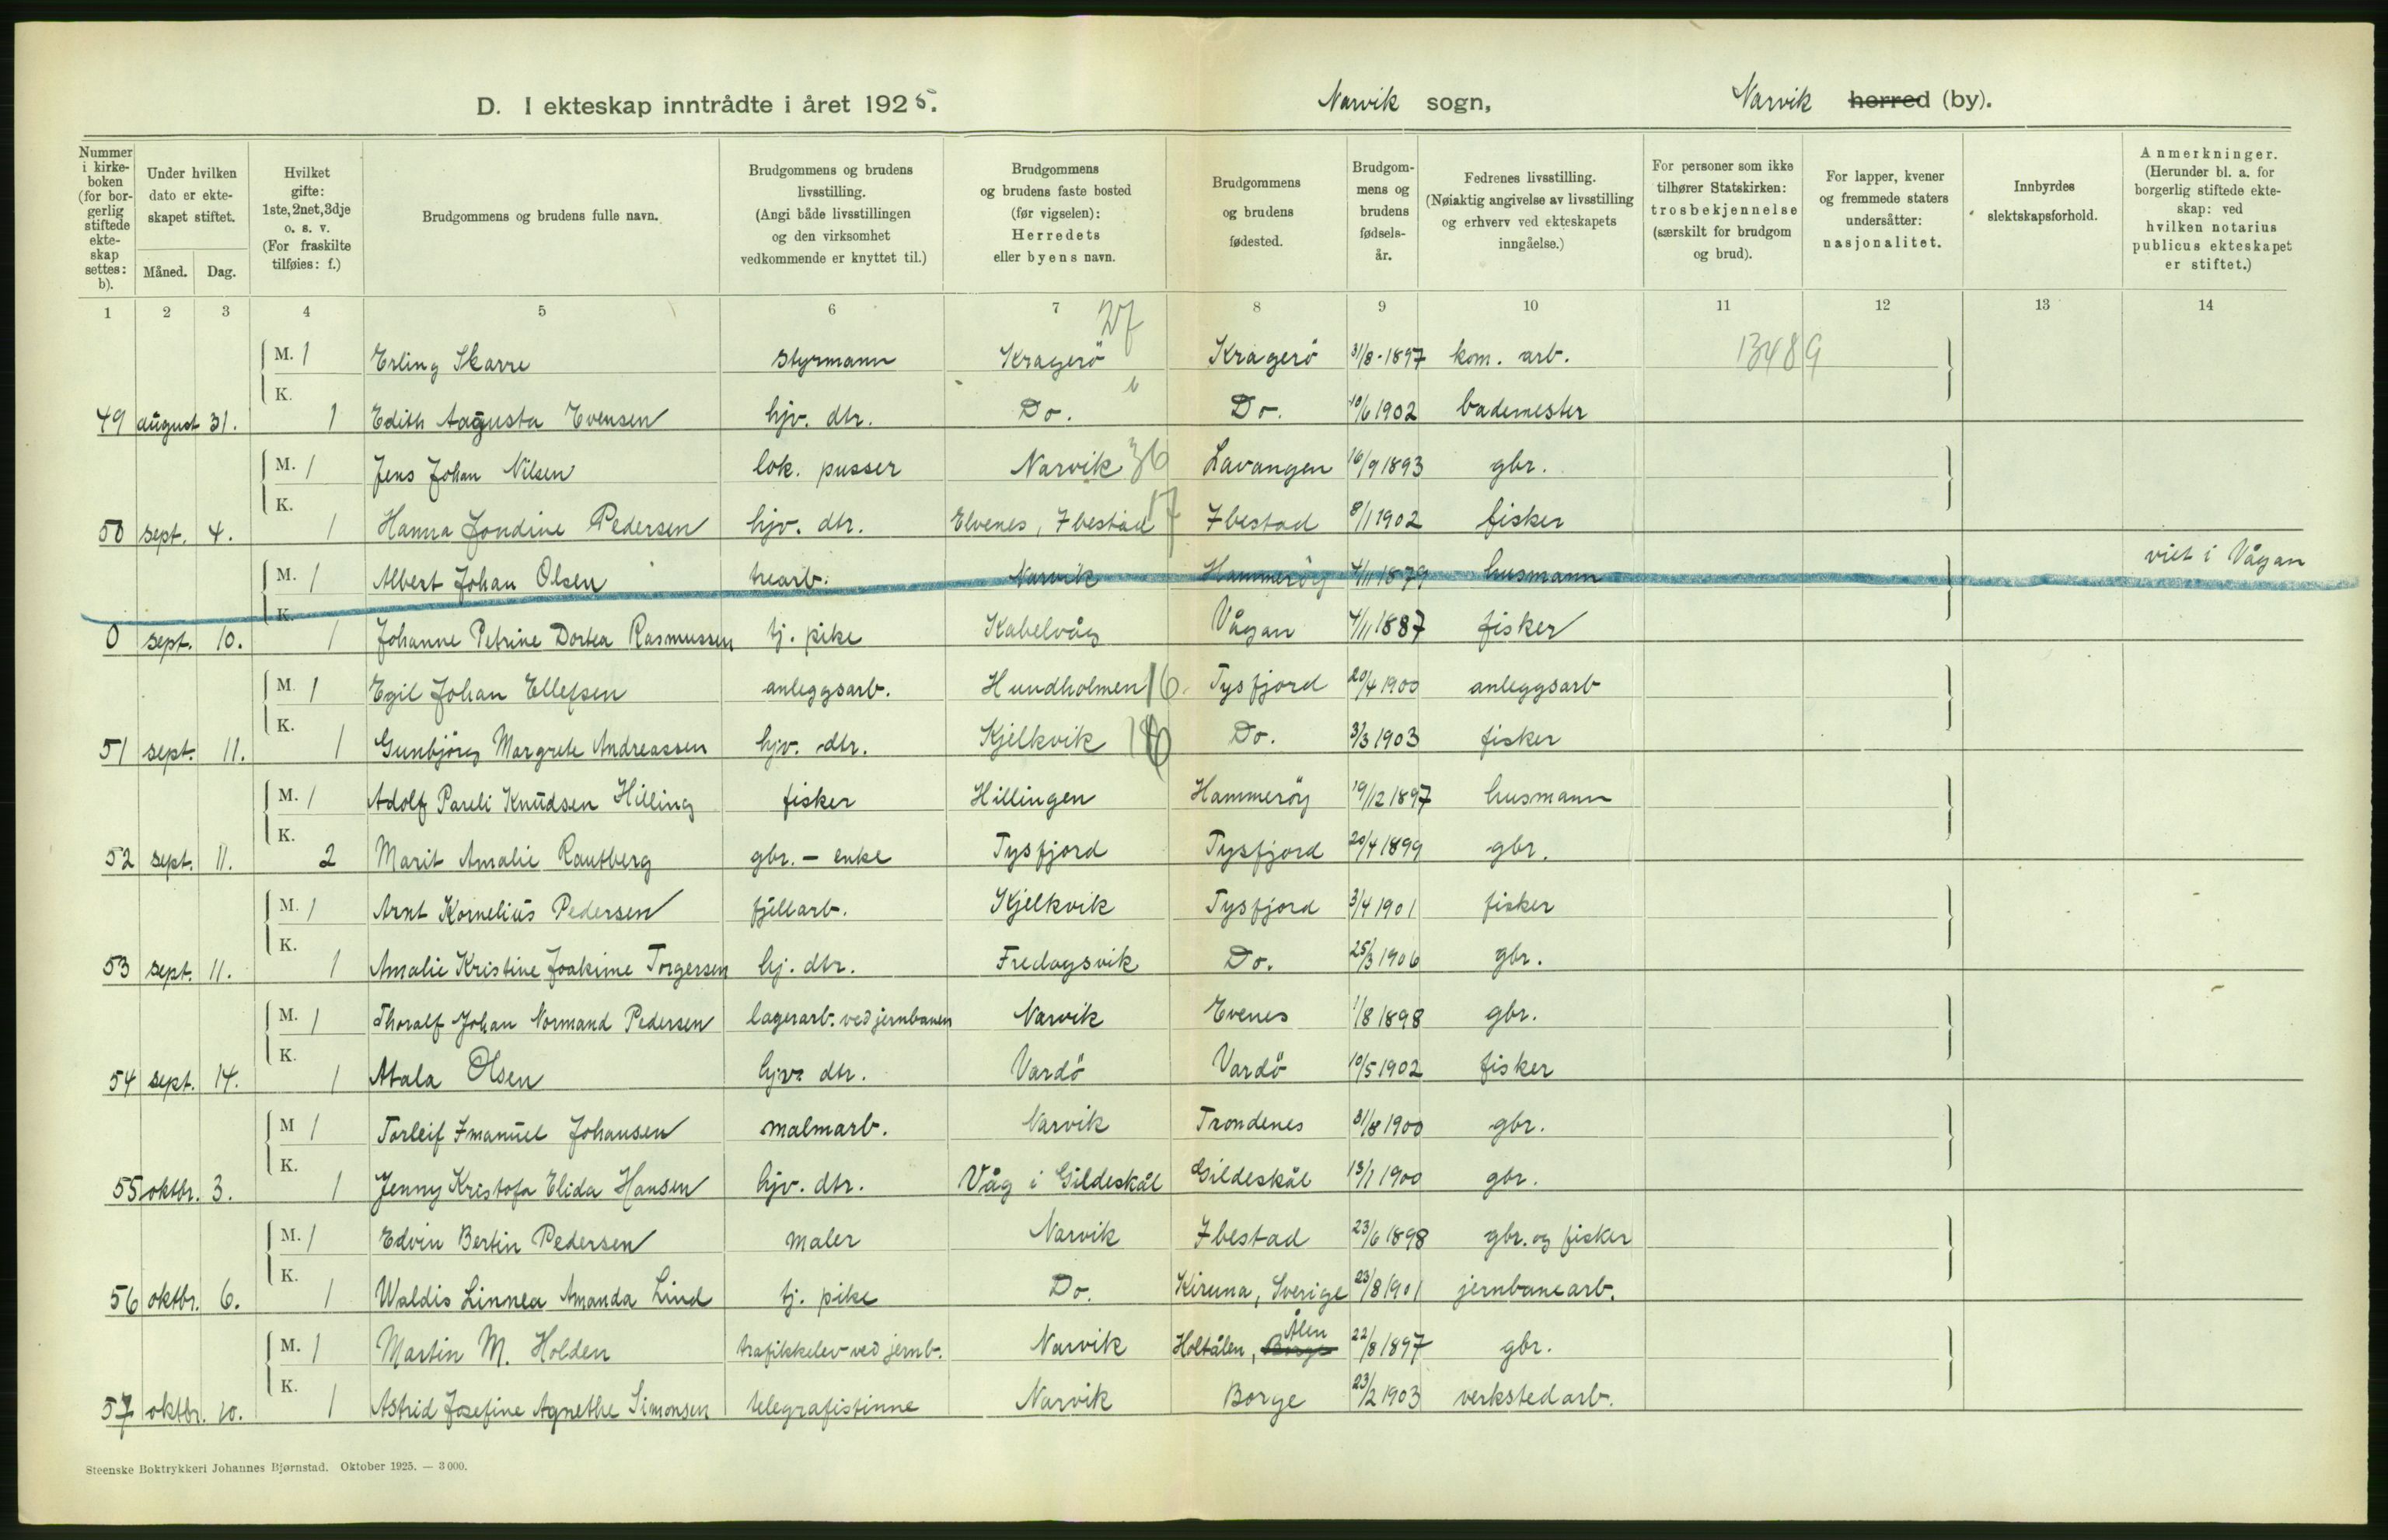 D. I ekteskap inntrådte i året 1925. Narvik sogn, Narvik herred (by).
Nummer i kirkeboken (for borgerlig stiftede ekteskap settes: b).
Under hvilken dato er ekteskapet stiftet.
Måned. Dag.
Hvilket gifte: 1ste, 2net, 3dje o. s. v. (For fraskilte tilføies: f.)
Brudgommens og brudens fulle navn.
Brudgommens og brudens livsstilling. (Angi både livsstillingen og den virksomhet vedkommende er knyttet til.)
Brudgommens og brudens faste bosted (før vigselen): Herredets eller byens navn.
Brudgommens og brudens fødested.
Brudgommens og brudens fødselsår.
Fedrenes livsstilling. (Nøiaktig angivelse av livsstilling og erhverv ved ekteskapets inngåelse.)
For personer som ikke tilhører Statskirken: trosbekjennelse (særskilt for brudgom og brud).
For lapper, kvener og fremmede staters undersåtter: nasjonalitet.
Innbyrdes slektskapsforhold.
Anmerkninger. (Herunder bl. a. for borgerlig stiftede ekteskap: ved hvilken notarius publicus ekteskapet er stiftet.)
1 2 3 4 5 6 7 8 9 10 11 12 13 14
M. 1 Erling Skarre styrmann Kragerö Kragerö 31/8-1897 kom. arb. 13489
49 august 31. K. 1 Edith Augusta Evensen hjv. dtr. Do. Do. 10/6 1902 bademester
M. 1 Jens Johan Nilsen lok. pusser Narvik 36 Lavangen 16/9 1893 gbr.
50 sept. 4. K. 1 Hanna Jondine Pedersen hjv. dtr. Elvenes, Ibestad 17 Ibestad 8/1 1902 fisker
M. 1 Albert Johan Olsen trearb. Narvik Hammeröy 4/11 1879 husmann viet i Vågan
0 sept. 10. K. 1 Johanne Petrine Dortea Rasmussen tj. pike Kabelvåg Vågan 4/11 1887 fisker
M. 1 Egil Johan Ellefsen anleggsarb. Hundholmen 16 Tysfjord 20/4 1900 anleggsarb
51 sept. 11. K. 1 Gunbjörg Margrete Andreassen hjv. dtr. Kjelkvik 16 Do. 3/3 1903 fisker
M. 1 Adolf Pareli Knudsen Hilling fisker Hillingen Hammeröy 19/12 1897 husmann
52 sept. 11. K. 2 Marit Amalie Rautberg gbr. - enke Tysfjord Tysfjord 20/4 1899 gbr.
M. 1 Arnt Kornelius Pedersen fjellarb. Kjelkvik Tysfjord 3/4 1901 fisker
53 sept. 11. K. 1 Amalie Kristine Joakime Torgersen hj. dtr. Fredagsvik Do. 25/3 1906 gbr.
M. 1 Thoralf Johan Normand Pedersen lagerarb. ved jernbanen Narvik Evenes 1/8 1898 gbr.
54 sept. 14. K. 1 Atala Olsen hjv. dtr. Vardö Vardö 10/5 1902 fisker
M 1 Torleif Imanuel Johansen malmarb. Narvik Trondenes 31/8 1900 gbr.
55 oktbr. 3. K. 1 Jenny Kristofa Elida Hansen hjv. dtr. Våg i Gildeskål Gildeskål 13/1 1900 gbr.
M. 1 Edvin Bertin Pedersen maler Narvik Ibestad 23/6 1898 gbr. og fisker
56 oktbr. 6. K. 1 Waldis Linnea Amanda Lind tj. pike Do. Kiruna, Sverige 23/8 1901 jernbanearb.
M. 1 Martin M. Holden trafikkelev ved jernb. Narvik Holtålen, Borge Ålen 22/8 1897 gbr.
57 oktbr. 10. K. 1 Astrid Josefine Agnethe Simonsen telegrafistinne Narvik Borge 23/2 1903 verkstedarb.
Steenske Boktrykkeri Johannes Bjørnstad. Oktober 1925. — 3000.